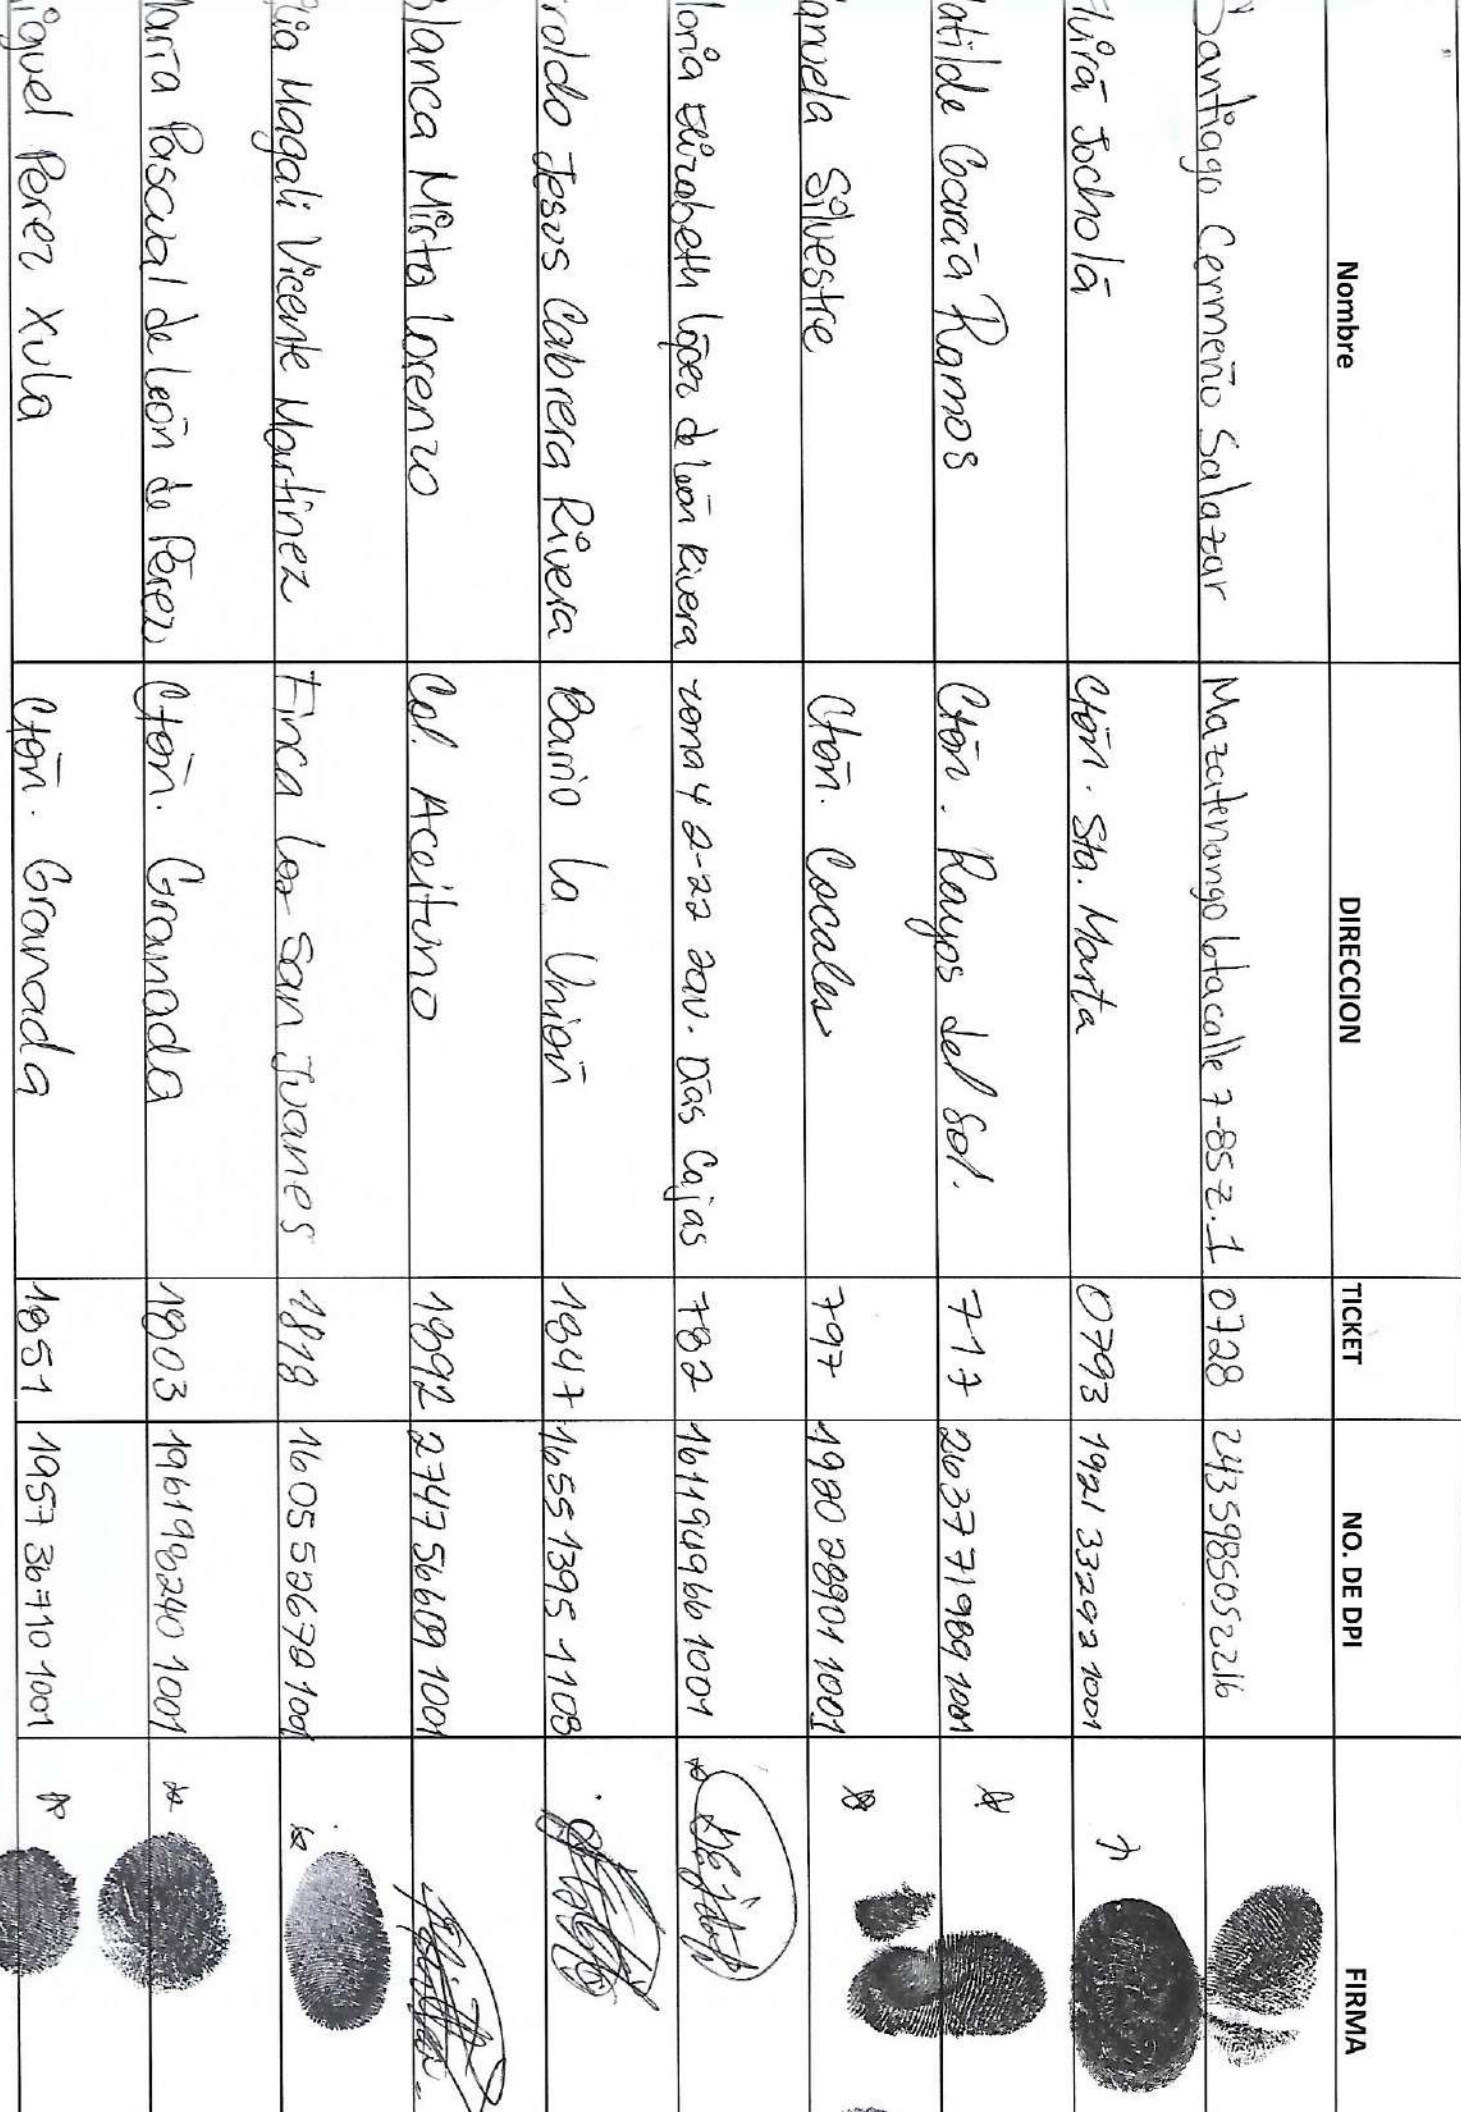 Nombre DIRECCION TICKET NO. DE DPI FIRMA
Santiago Cermeño Salazar Mazatenango 6ta calle 7-85 z.1 0728 2435985052216
lvira Jocholá Ctón. Sta. Marta 0793 1921 33292 1001
atilde García Ramos Ctón. Rayos del Sol. 717 2637 71989 1001
anuela Silvestre Ctón. Cocales 797 1980 28901 1001
loria Elizabeth López de León Rivera zona 4 2-22 2av. Días Cajas 782 1611 94966 1001
roldo Jesus Cabrera Rivera Barrio la Unión 1847 1655 1395 1108
Blanca Mirta Lorenzo Col. Aceituno 1892 2747 56609 1001
lia Magali Vicente Martínez Finca Los San Juanes 1818 1605 52678 1001
María Pascual de León de Pérez Ctón. Granada 1803 1961 98240 1001
iguel Perez Xula Ctón. Granada 1851 1957 36710 1001